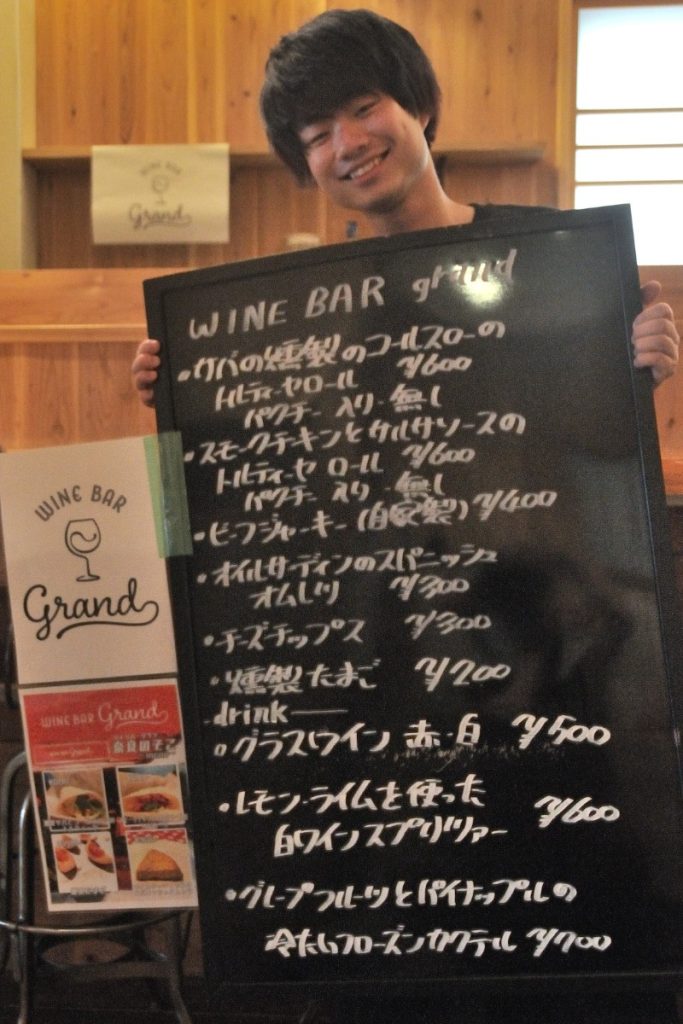 WINE BAR
Grand
WINE BAR grand
・サバの燻製のコールスローの
トルティーヤロール ¥600
パクチー入り・無し
・スモークチキンとサルサソースの
トルティーヤロール ¥600
パクチー入り・無し
・ビーフジャーキー(自家製)¥400
・オイルサーディンのスパニッシュ
オムレツ ¥300
・チーズチップス ¥300
・燻製たまご ¥200
-drink—
・グラスワイン 赤・白 ¥500
・レモン・ライムを使った
白ワインスプリツァー ¥600
・グレープフルーツとパイナップルの
冷たいフローズンカクテル ¥700
WINE BAR
Grand
WINE BAR Grand